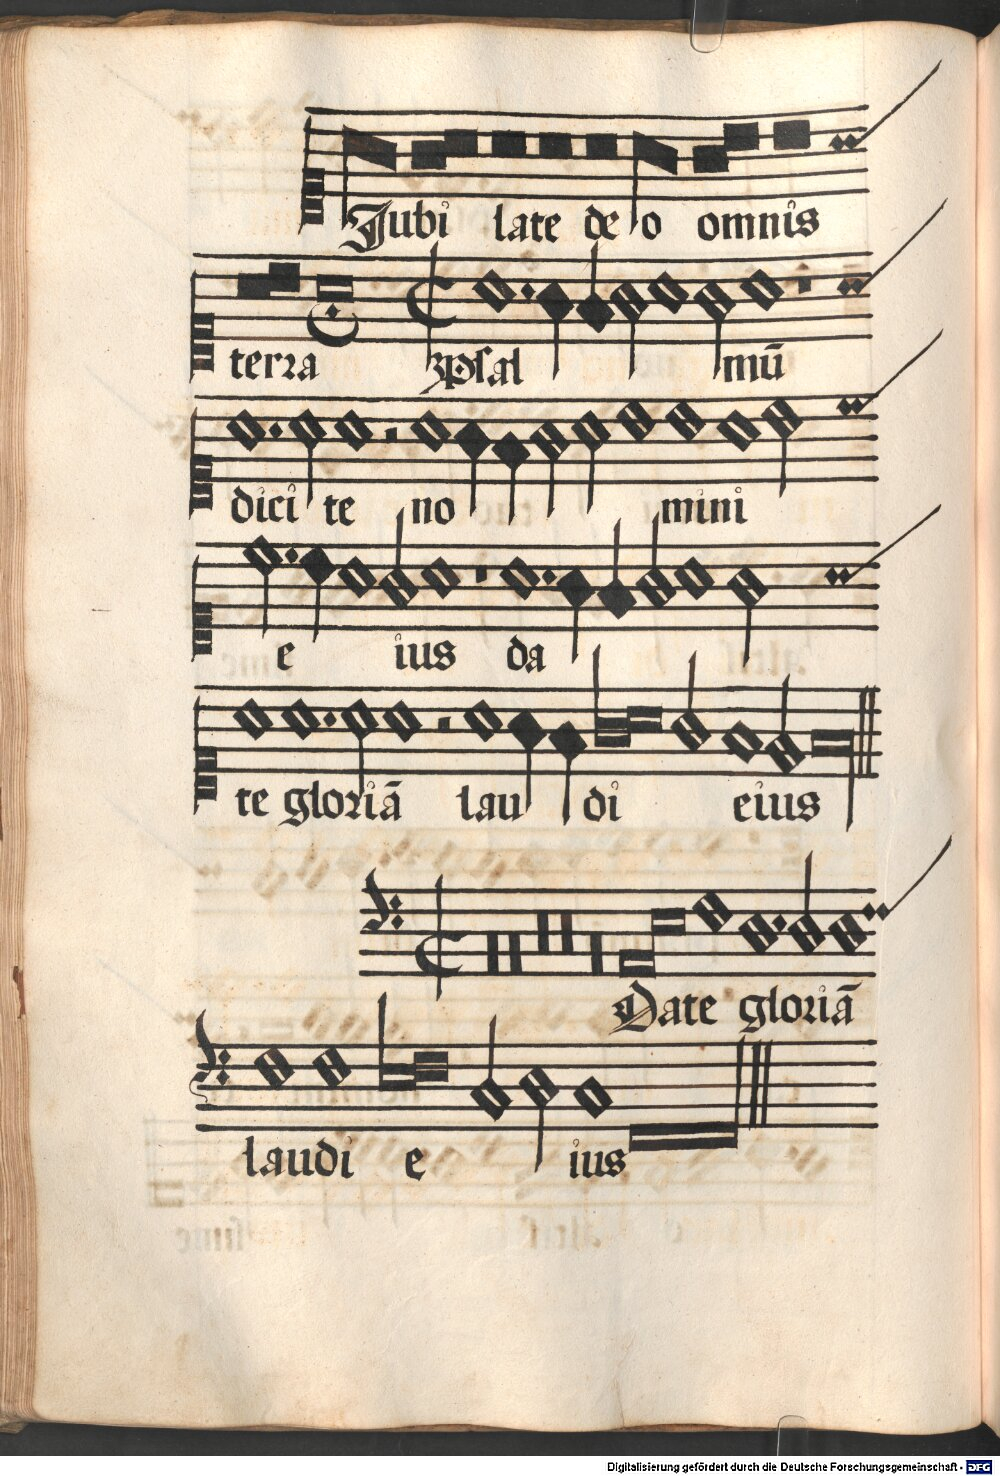 Jubi late de o omnis
terra psal mū
dici te no mini
e ius da
te gloriā lau di eius
Date gloriā
laudi e ius
Digitalisierung gefördert durch die Deutsche Forschungsgemeinschaft - DFG